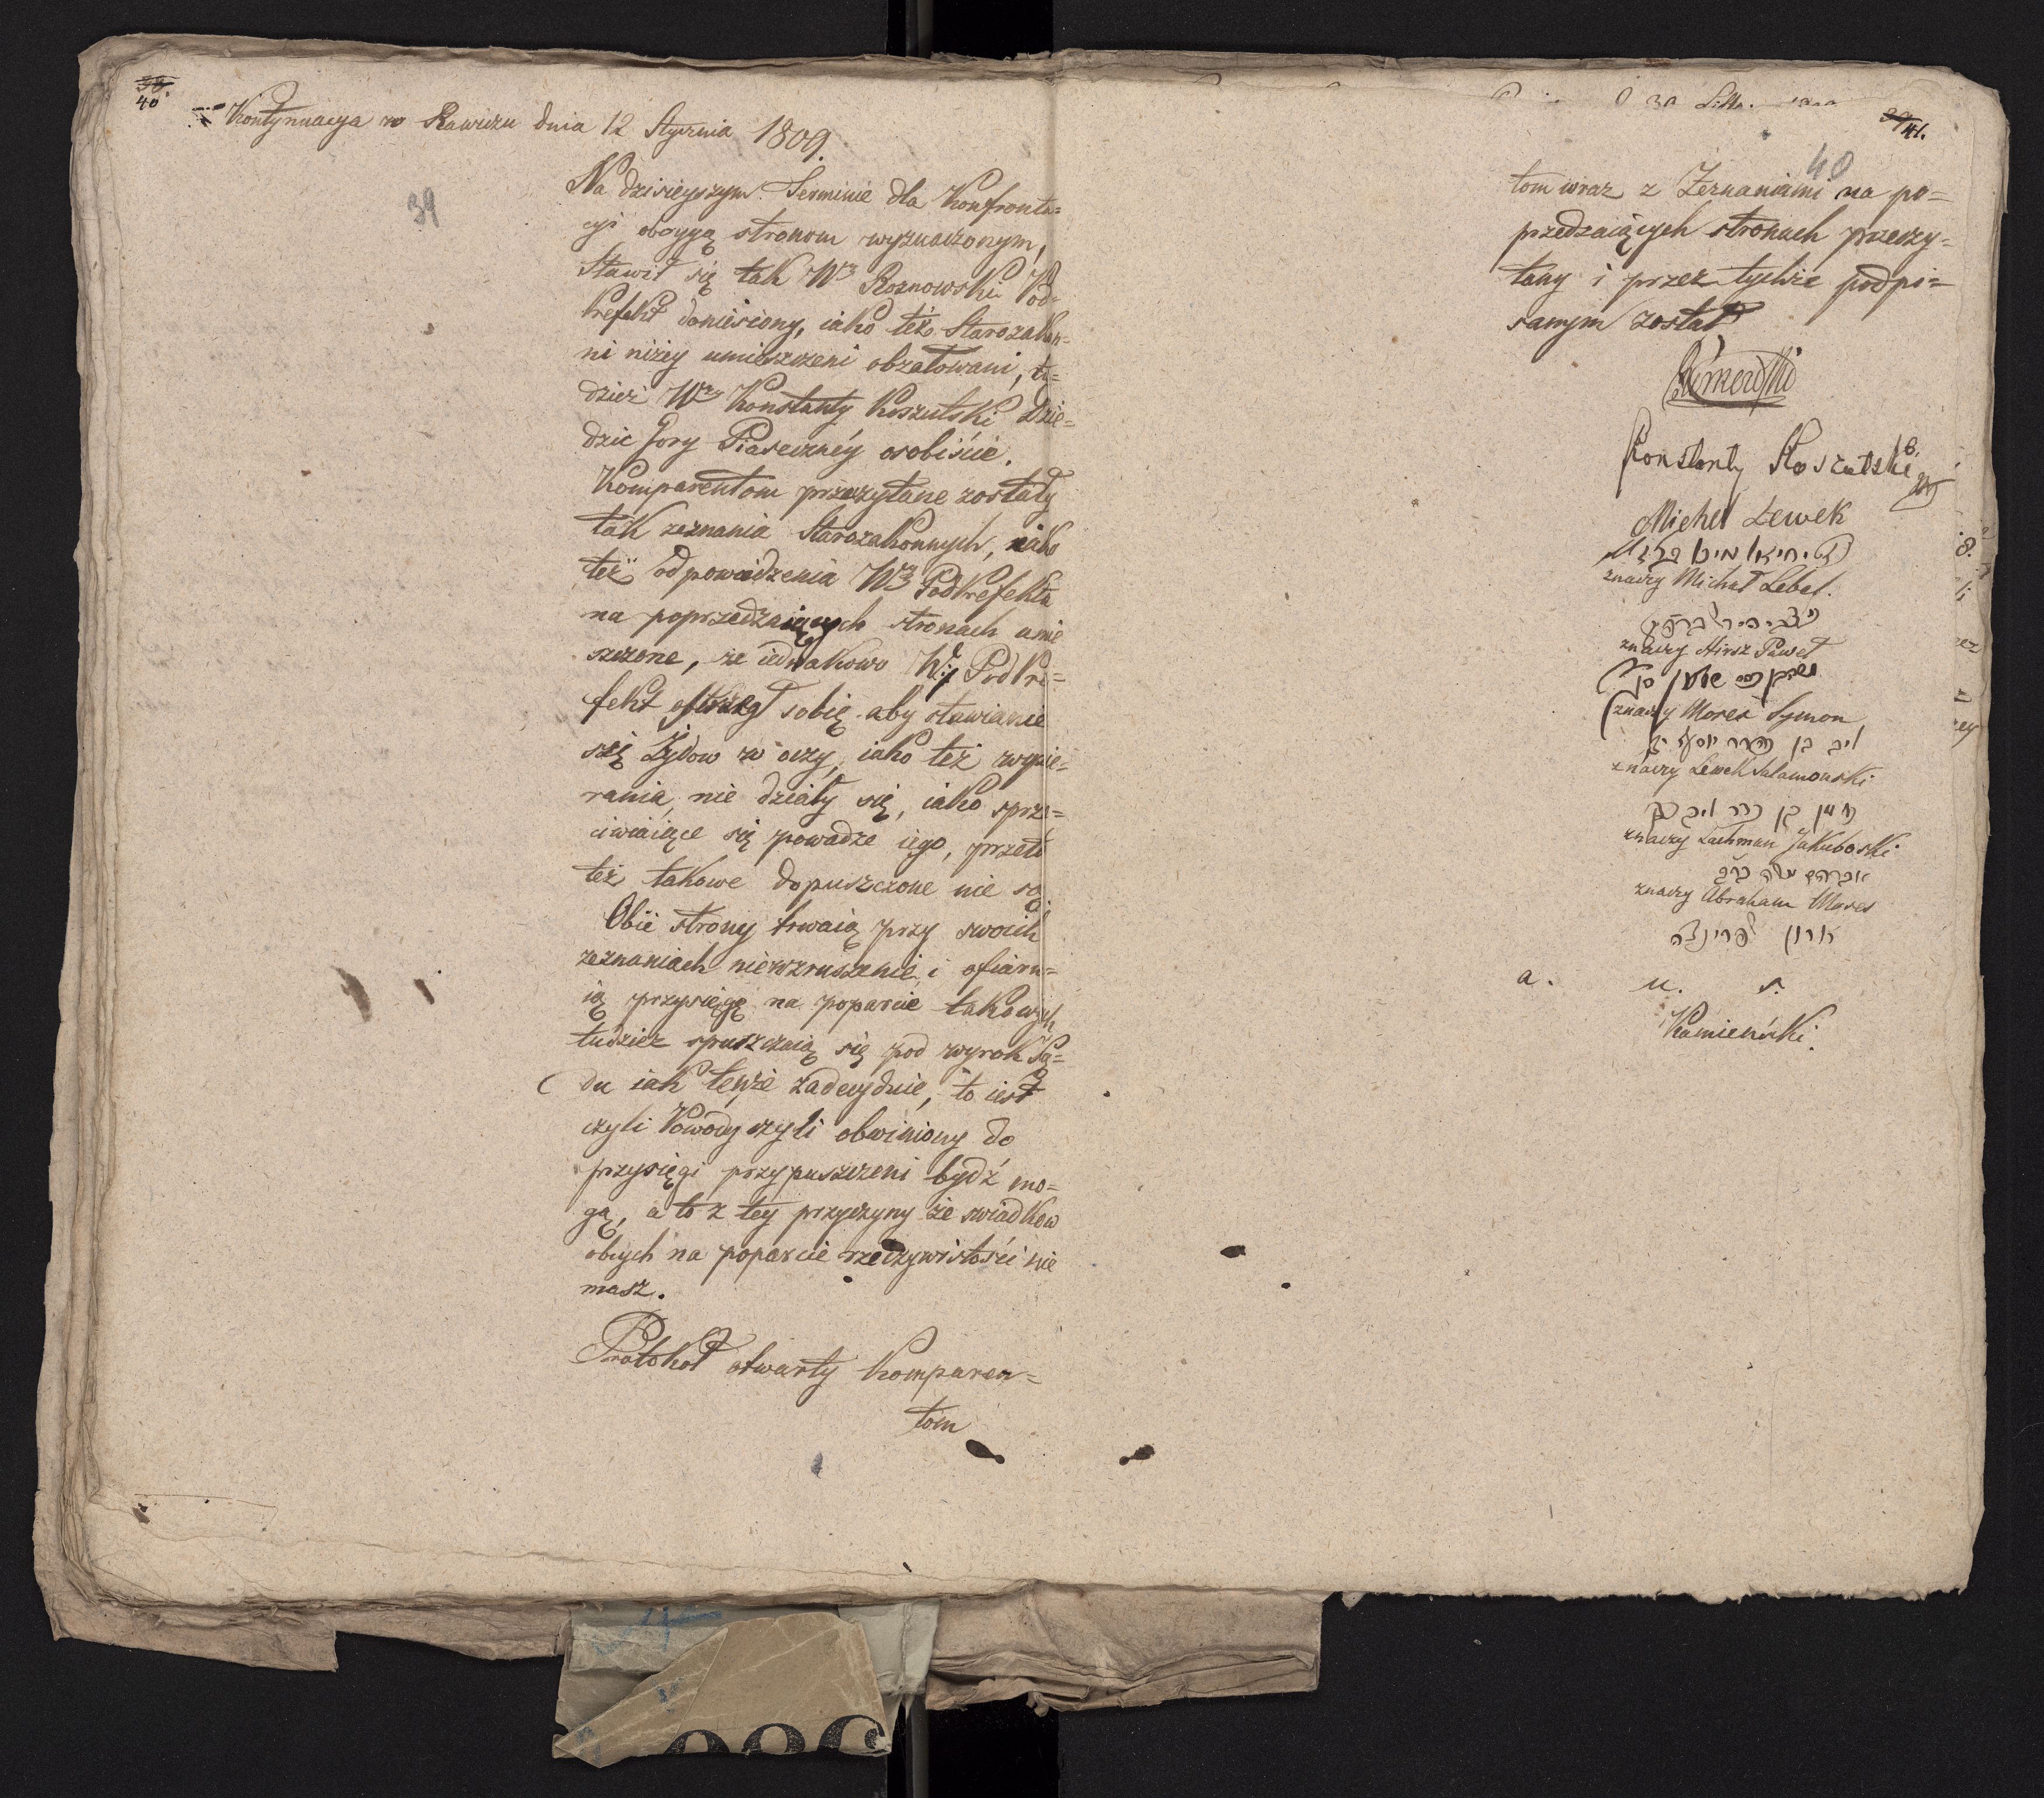 40
Kontynuacya w Rawiczu dnia 12 Stycznia 1809.
39
Na dzisieyszym Terminie dla Konfronta=
cyi oboyga stronom wyznaczonym,
Stawił się tak Wny Roznowski Pod=
Prefekt doniesiony, iako też Starozakon=
ni niżey umieszczeni obżałowani, tu=
dzież Wny Konstanty Koszutski Dzie=
dzic Gory Piasecznéy osobiście.
Komparentom przeczytane zostały
tak zeznania Starozakonnych, iako
też odpowiedzenia Wgo PodPrefekta
na poprzedzaiących stronach umie
szczone, że iednakowo W: PodPre=
fekt ostrzegł sobie aby stawianie
się Żydow w oczy, iako też wypie=
rania, nie działy się, iako sprze=
ciwiaiące się powadze iego, przeto
też takowe dopuszczone nie są.
Obie strony trwaią przy swoich
zeznaniach niewzruszenie i ofiaru=
ią przysięgę na poparcie takowych
tudzież spuszczaią się pod wyrok Są=
du iak tenże zadecyduie, to iest
czyli Powody czyli obwiniony do
przysięgi przypuszczeni bydź mo=
gą, a to z tey przyczyny że swiadkow
obcych na poparcie rzeczywistości nie
masz.
Protokoł otwarty Komparen=
tom
41.
40
tom wraz z Zeznaniami na po=
przedzaiących stronach przeczy=
tany i przez tychże podpi=
sanym został
Konstanty Koszutski
Michel Lewek
znaczy Michał Lebel.
znaczy Hirsz Paweł
znaczy Moses Symon
znaczy Lewek Salamonski
znaczy Lachman Jakuboski
אברהם משה
znaczy Abraham Moses
אהרן
a. u. s.
Kamieński.